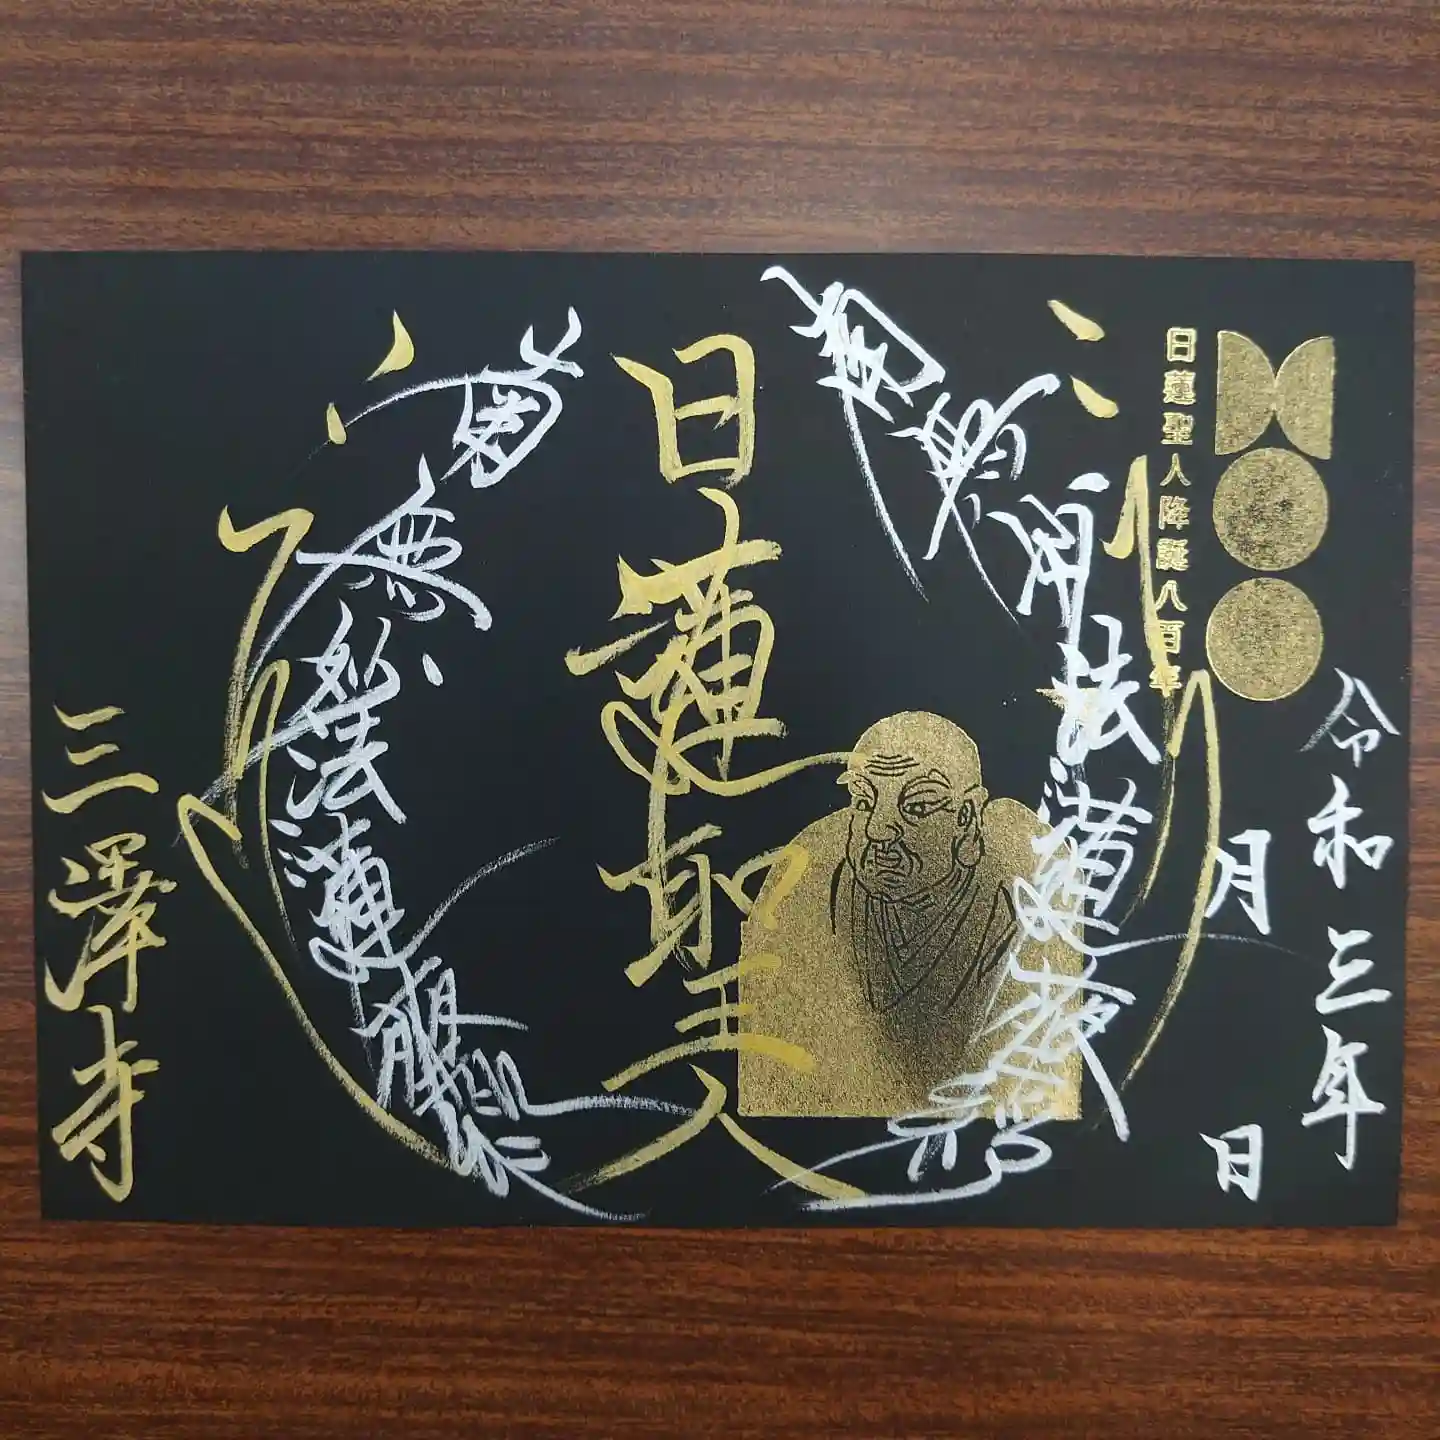 令和三年
月
日
日蓮聖人降誕八百年
南無妙法蓮華経
日蓮聖人
南無妙法蓮華経
三澤寺